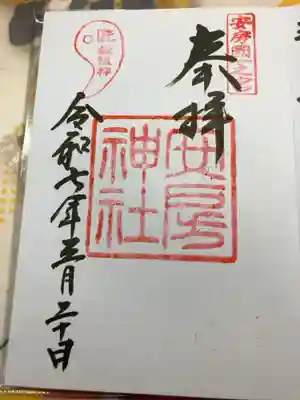 安房國一之宮
奉拝
安房神社
令和七年三月二十日